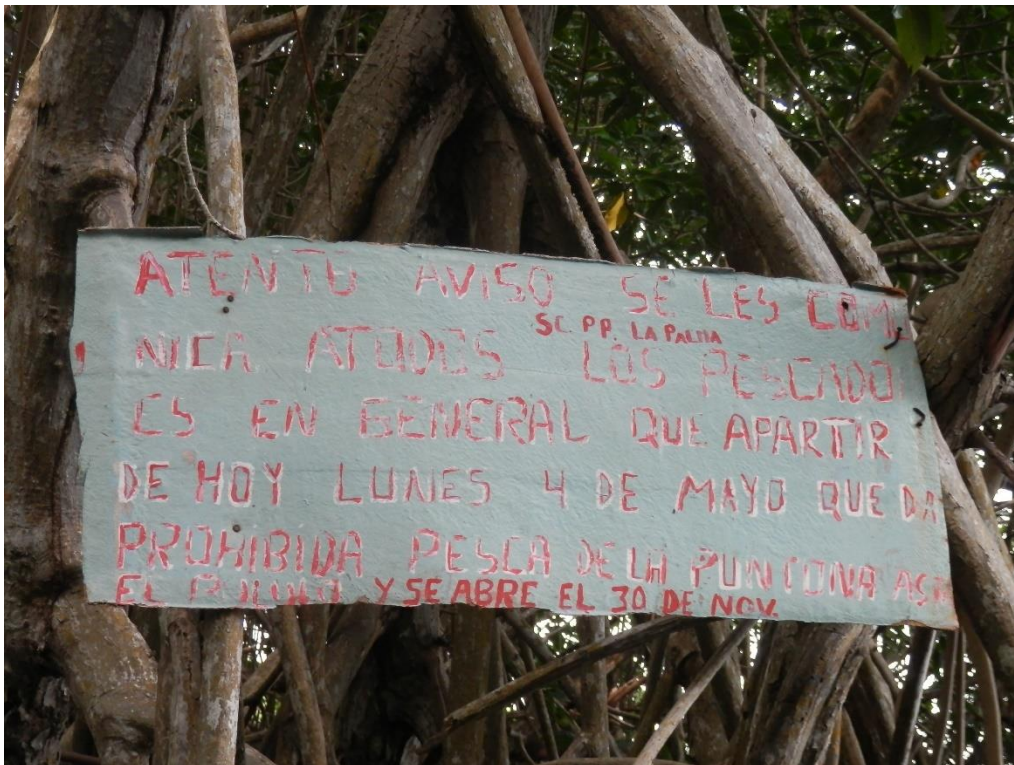 ATENTO AVISO SE LES COMU
SC. P.P. LA PALMA
NICA ATODOS LOS PESCADOR
ES EN GENERAL QUE APARTIR
DE HOY LUNES 4 DE MAYO QUEDA
PROHIBIDA PESCA DE LA PUNTONA ASTA
EL Y SE ABRE EL 30 DE NOV.